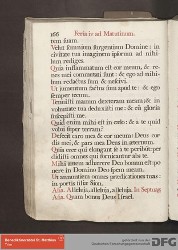 166 Feria iv ad Matutinum.
tem suam.
Velut somnium surgentium Domine: in
civitate tua imaginem ipsorum ad nihi-
lum rediges.
Quia inflammatum est cor meum, & re-
nes mei commutati sunt: & ego ad nihi-
lum redactus sum, & nescivi.
Ut jumentum factus sum apud te: & ego
semper tecum.
Tenuisti manum dexteram meam: & in
voluntate tua deduxisti me: & cū gloria
suscepisti me.
Quid enim mihi est in cœlo: & a te quid
volui super terram?
Defecit caro mea & cor meum: Deus cor
dis mei, & pars mea Deus in æternum.
Quia ecce qui elongant se a te peribunt: per
didisti omnes qui fornicantur abs te.
Mihi autem adhærere Deo bonum est: po
nere in Domino Deo spem meam.
Ut annuntiem omnes prædicationes tuas:
in portis filiæ Sion.
Aña. Alleluia, alleluia, alleluia. In Septuag
Aña. Quam bonus Deus Israel.
DFG